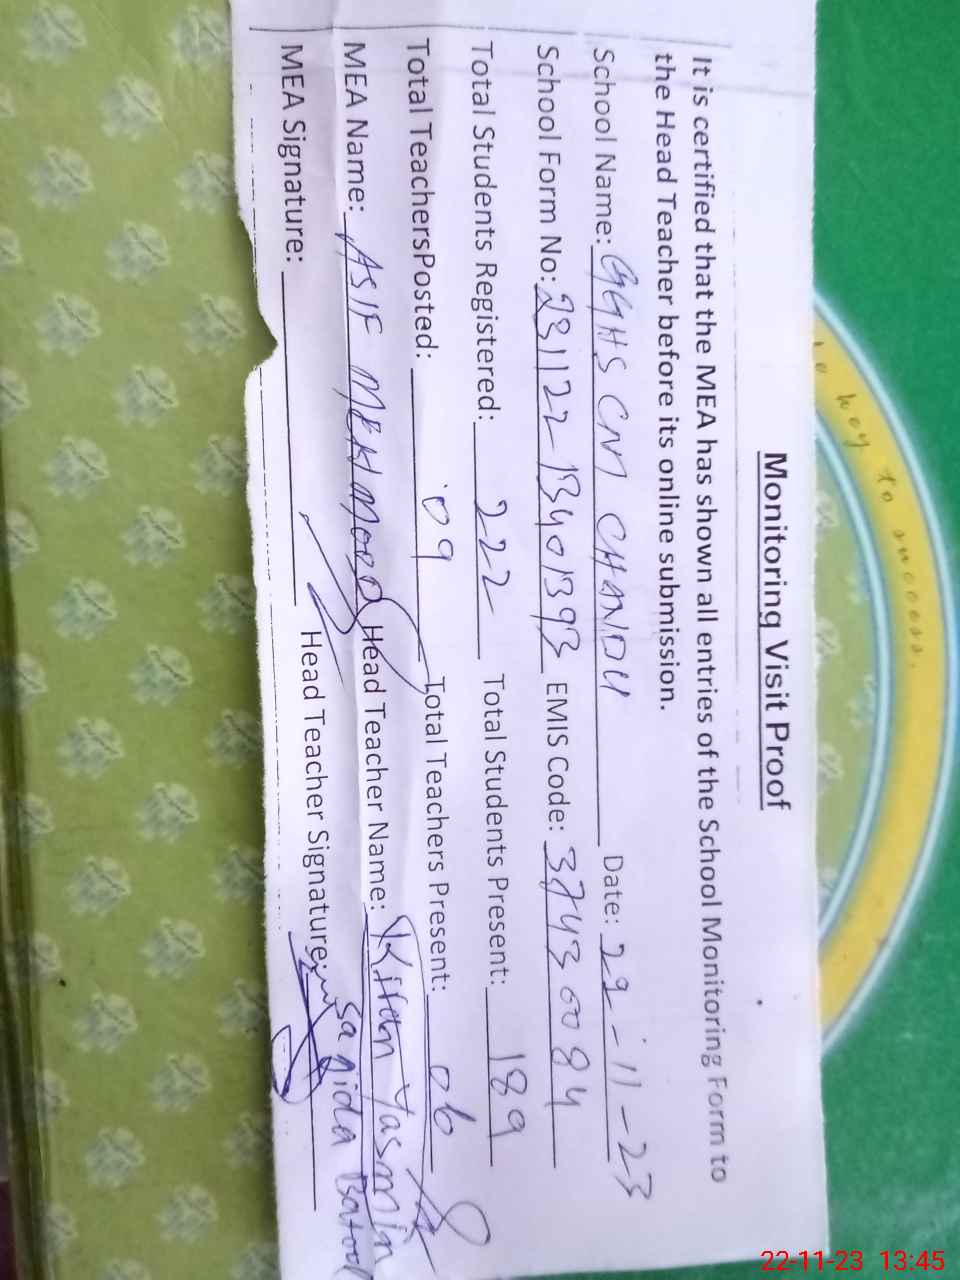 Monitoring Visit Proof
It is certified that the MEA has shown all entries of the School Monitoring Form to
the Head Teacher before its online submission.
School Name: GGHS CNN CHANDU Date: 29-11-23
School Form No: 231122-13401393 EMIS Code: 37430084
Total Students Registered: 222 Total Students Present: 189
Total TeachersPosted: 09 Total Teachers Present: 06
MEA Name: ASIF MEHMOOD Head Teacher Name: Kiran Yasmin
MEA Signature: Head Teacher Signature: Sajida Batool
key to success.
22-11-23 13:45